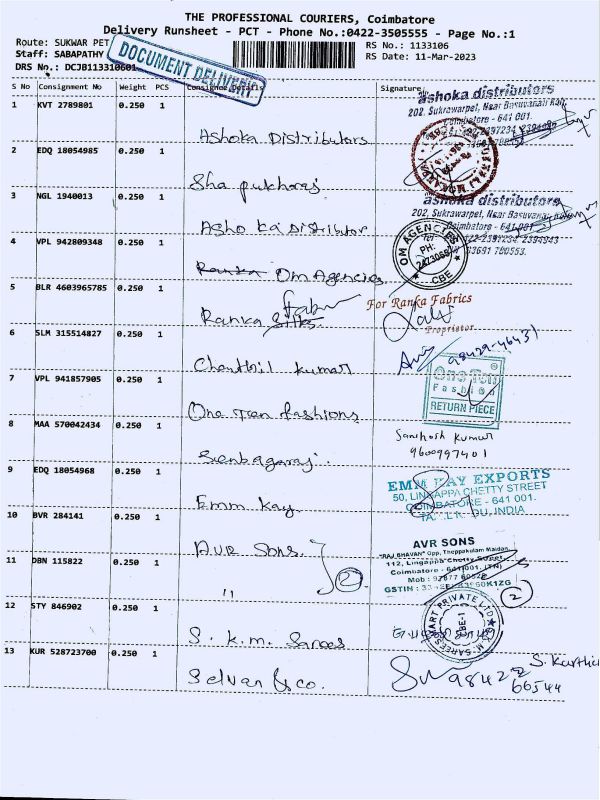 THE PROFESSIONAL COURIERS, Coimbatore
Delivery Runsheet - PCT - Phone No.:0422-3505555 - Page No.:1
Route: SUKWAR PET
RS No.: 1133106
Staff: SABAPATHY
RS Date: 11-Mar-2023
DRS No.: DCJB113310601
DOCUMENT DELIVERY
S No Consignment No Weight PCS Consignee Details Signature
1 KVT 2789801 0.250 1
Ashoka Distributors
ashoka distributors
202, Sukrawarpet, Near Basuvanali Koil,
Coimbatore - 641 001.
2 EDQ 18054985 0.250 1
Sha pukhoraj
3 NGL 1940013 0.250 1
Ashoka Distributor
ashoka distributors
202, Sukrawarpet, Near Basuvanali
Coimbatore - 641 001.
4 VPL 942809348 0.250 1
Ranka Om Agencies
OM AGENCIES
PH:
2473069
CBE
5 BLR 4603965785 0.250 1
Ranka Silks Fabri
For Ranka Fabrics
Proprietor
6 SLM 315514827 0.250 1
Chenthil kumar
98429-46431
7 VPL 941857905 0.250 1
One Teen fashions
One Ten
Fashion
RETURN PIECE
8 MAA 570042434 0.250 1
Senbagaraj
Santhosh kumar
9600997401
9 EDQ 18054968 0.250 1
Emm Kay
EMM KAY EXPORTS
50, LINGAPPA CHETTY STREET
COIMBATORE - 641 001.
INDIA
10 BVR 284141 0.250 1
A.V.R Sons.
AVR SONS
"RAJ BHAVAN" Opp, Theppakulam Maidan
112, Lingappa Chetty Street
Coimbatore - 641 001. (TN)
Mob :
GSTIN :
11 DBN 115822 0.250 1
" 2
2
12 STY 846902 0.250 1
S. k.m. Sarees
13 KUR 528723700 0.250 1
Selvan & co.
98422
66544
S. Karthic